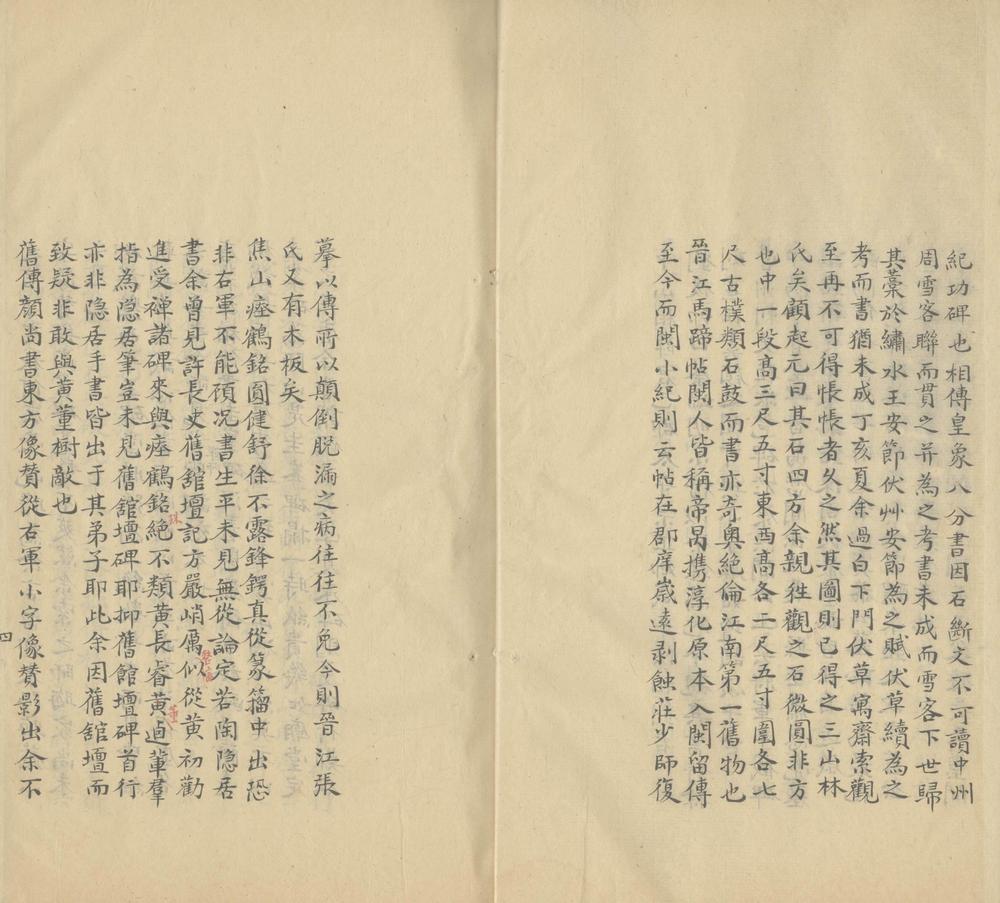 紀功碑也相傳皇象八分書因石斷文不可讀中州
周雪客聯而貫之并為之考書未成而雪客下世歸
其藁於繡水王安節伏艸安節為之賦伏草續為之
考而書猶未成丁亥夏余過白下門伏草寓齋索觀
至再不可得悵悵者久之然其圖則已得之三山林
氏矣顧起元曰其石四方余親徃觀之石微圓非方
也中一段高三尺五寸東西高各二尺五寸圍各七
尺古樸類石鼓而書亦奇奧絕倫江南第一舊物也
晉江馬蹄帖閩人皆稱帝昺攜淳化原本入閩留傳
至今而閩小紀則云帖在郡庠嵗遠剥蝕莊少師復
摹以傳所以顛倒脫漏之病往往不免今則晉江張
氏又有木板矣
焦山瘞鶴銘圓健舒徐不露鋒鍔真從篆籀中出恐
非右軍不能碩况書生平未見無從論定若陶隐居
書余曾見許長史舊舘壇記方嚴峭厲似從黃初勸
進受禪諸碑來與瘞鶴銘絕不類黃長睿黃逌輩羣
指為隐居筆豈未見舊舘壇碑耶抑舊館壇碑首行
亦非隐居手書皆出于其弟子耶此余因舊舘壇而
致疑非敢與黃董樹敵也
舊傳顏尚書東方像贊從右軍小字像贊影出余不
董
四